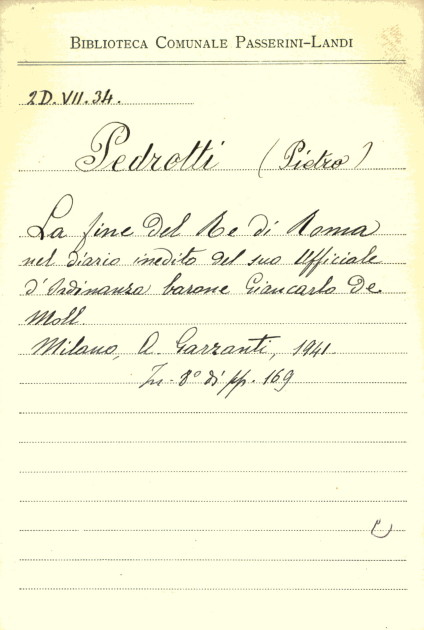 BIBLIOTECA COMUNALE PASSERINI-LANDI
2D.VII.34.
Pedrotti (Pietro)
La fine del Re di Roma
nel diario inedito del suo Ufficiale
d'Ordinanza barone Giancarlo De
Moll.
Milano, A. Garzanti, 1941.
In-8° di pp. 169